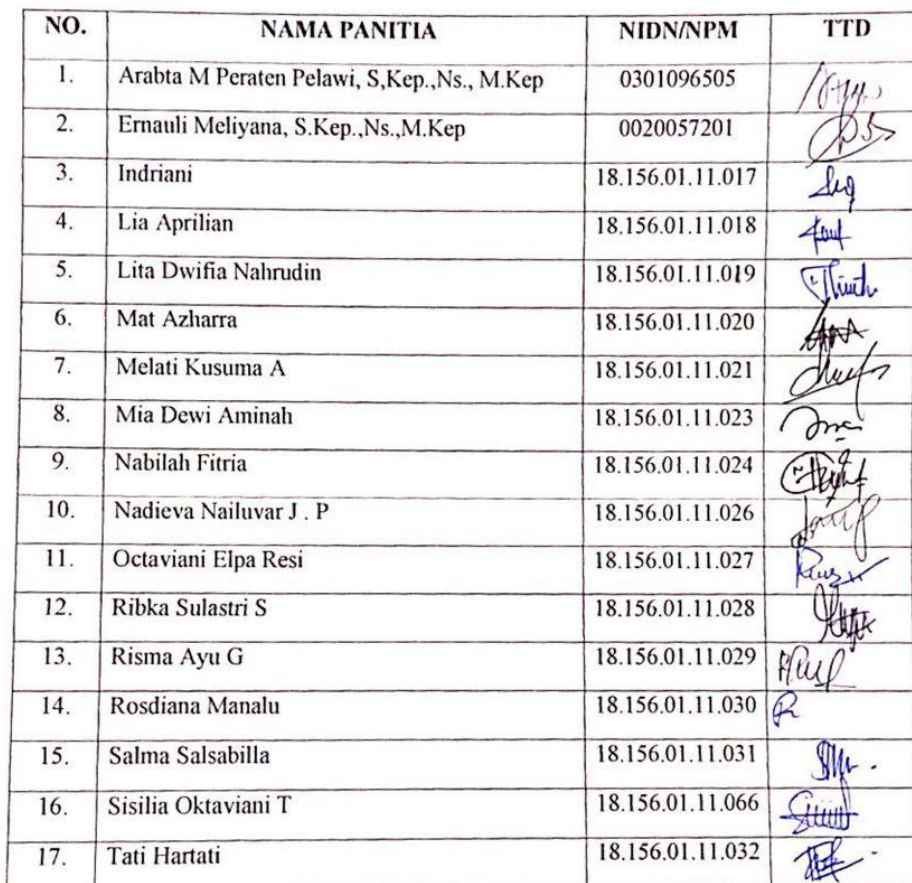 NO. NAMA PANITIA NIDN/NPM TTD
1. Arabta M Peraten Pelawi, S,Kep.,Ns., M.Kep 0301096505
2. Ernauli Meliyana, S.Kep.,Ns.,M.Kep 0020057201
3. Indriani 18.156.01.11.017
4. Lia Aprilian 18.156.01.11.018
5. Lita Dwifia Nahrudin 18.156.01.11.019
6. Mat Azharra 18.156.01.11.020
7. Melati Kusuma A 18.156.01.11.021
8. Mia Dewi Aminah 18.156.01.11.023
9. Nabilah Fitria 18.156.01.11.024
10. Nadieva Nailuvar J . P 18.156.01.11.026
11. Octaviani Elpa Resi 18.156.01.11.027
12. Ribka Sulastri S 18.156.01.11.028
13. Risma Ayu G 18.156.01.11.029
14. Rosdiana Manalu 18.156.01.11.030
15. Salma Salsabilla 18.156.01.11.031
16. Sisilia Oktaviani T 18.156.01.11.066
17. Tati Hartati 18.156.01.11.032